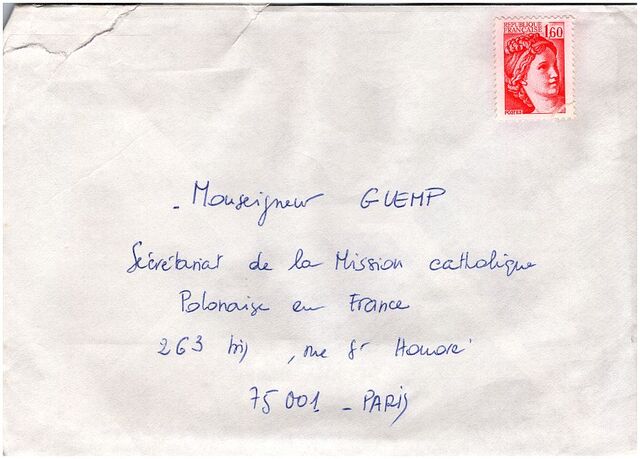 REPUBLIQUE
FRANÇAISE 1,60
POSTES
- Monseigneur GLEMP
Sécrétariat de la Mission catholique
Polonaise en France
263 bis, rue St Honoré
75001 - PARIS